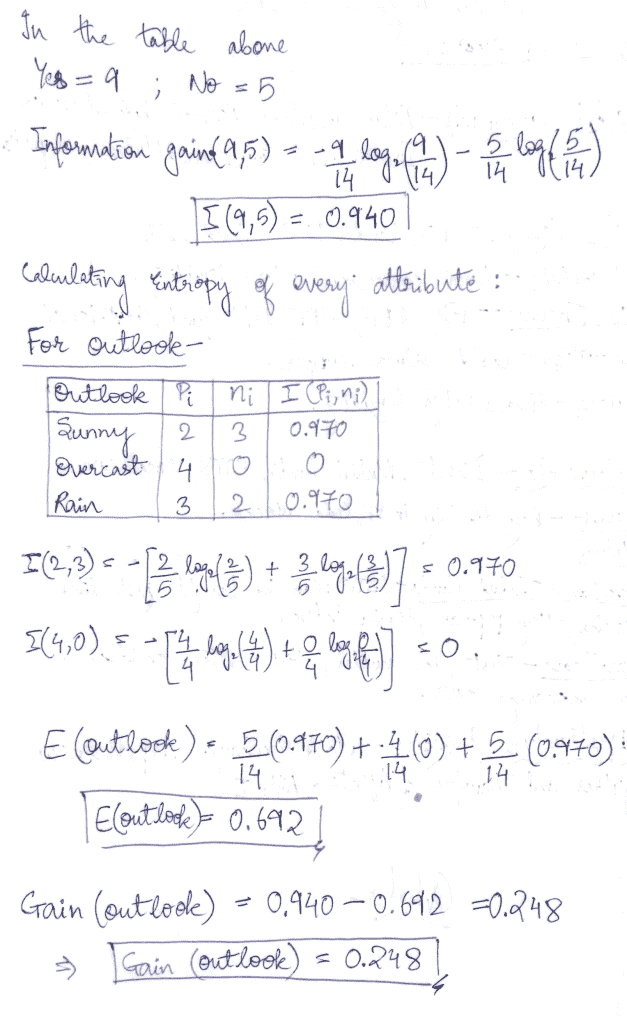 In the table above
Yes = 9 ; No = 5
Information gain(9,5) = -9/14 log₂(9/14) - 5/14 log₂(5/14)
I(9,5) = 0.940
Calculating Entropy of every attribute :
For outlook-
Outlook Pi ni I(Pi,ni)
Sunny 2 3 0.970
Overcast 4 0 0
Rain 3 2 0.970
I(2,3) = -[2/5 log₂(2/5) + 3/5 log₂(3/5)] = 0.970
I(4,0) = -[4/4 log₂(4/4) + 0/4 log₂(0/4)] = 0.
E(outlook) = 5/14 (0.970) + 4/14 (0) + 5/14 (0.970)
E(outlook) = 0.692
Gain (outlook) = 0.940 - 0.692 = 0.248
⇒ Gain (outlook) = 0.248